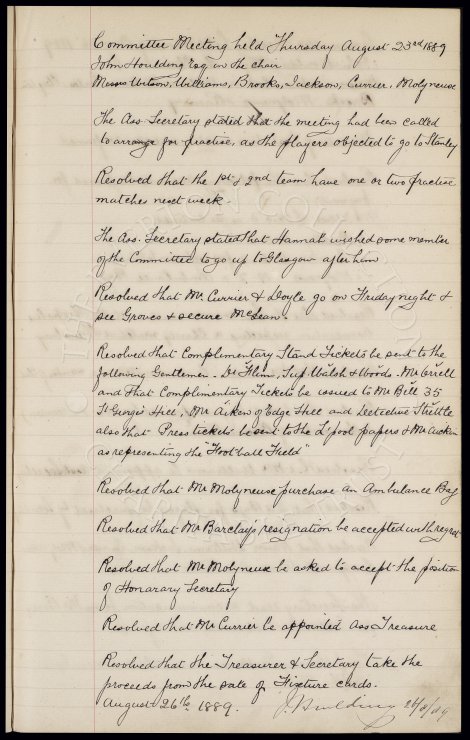 Committee Meeting held Thursday August 23rd 1889
John Houlding Esq in the chair
Messrs Wilson, Williams, Brooks, Jackson, Currier, Molyneuse
The Ass. Secretary stated that the meeting had been called
to arrange for practise, as the players objected to go to Stanley
Resolved that the 1st & 2nd team have one or two practise
matches next week.
The Ass. Secretary stated that Hannah wished some member
of the Committee to go up to Glasgow after him
Resolved that Mr Currier & Doyle go on Friday night &
see Groves & secure McLean.
Resolved that Complimentary Stand Tickets be sent to the
following Gentlemen. Dr Flinn, Sup Walsh & Woods.
and that Complimentary Tickets be issued to Mr Bell 35
St Georges Hill, Mr Aiken of Edge Hill and Detective Strettle
also that Press tickets be sent to the L'pool papers & Mr Aicken
as representing the "Football Field"
Resolved that Mr Molyneuse purchase an Ambulance Bag
Resolved that Mr Barclay's resignation be accepted with regret
Resolved that Mr Molyneux be asked to accept the position
of Honarary Secretary
Resolved that Mr Currier be appointed Ass Treasure
Resolved that the Treasurer & Secretary take the
proceeds from the sale of Fixture cards.
August 26th 1889. J. Houlding 26/8/89